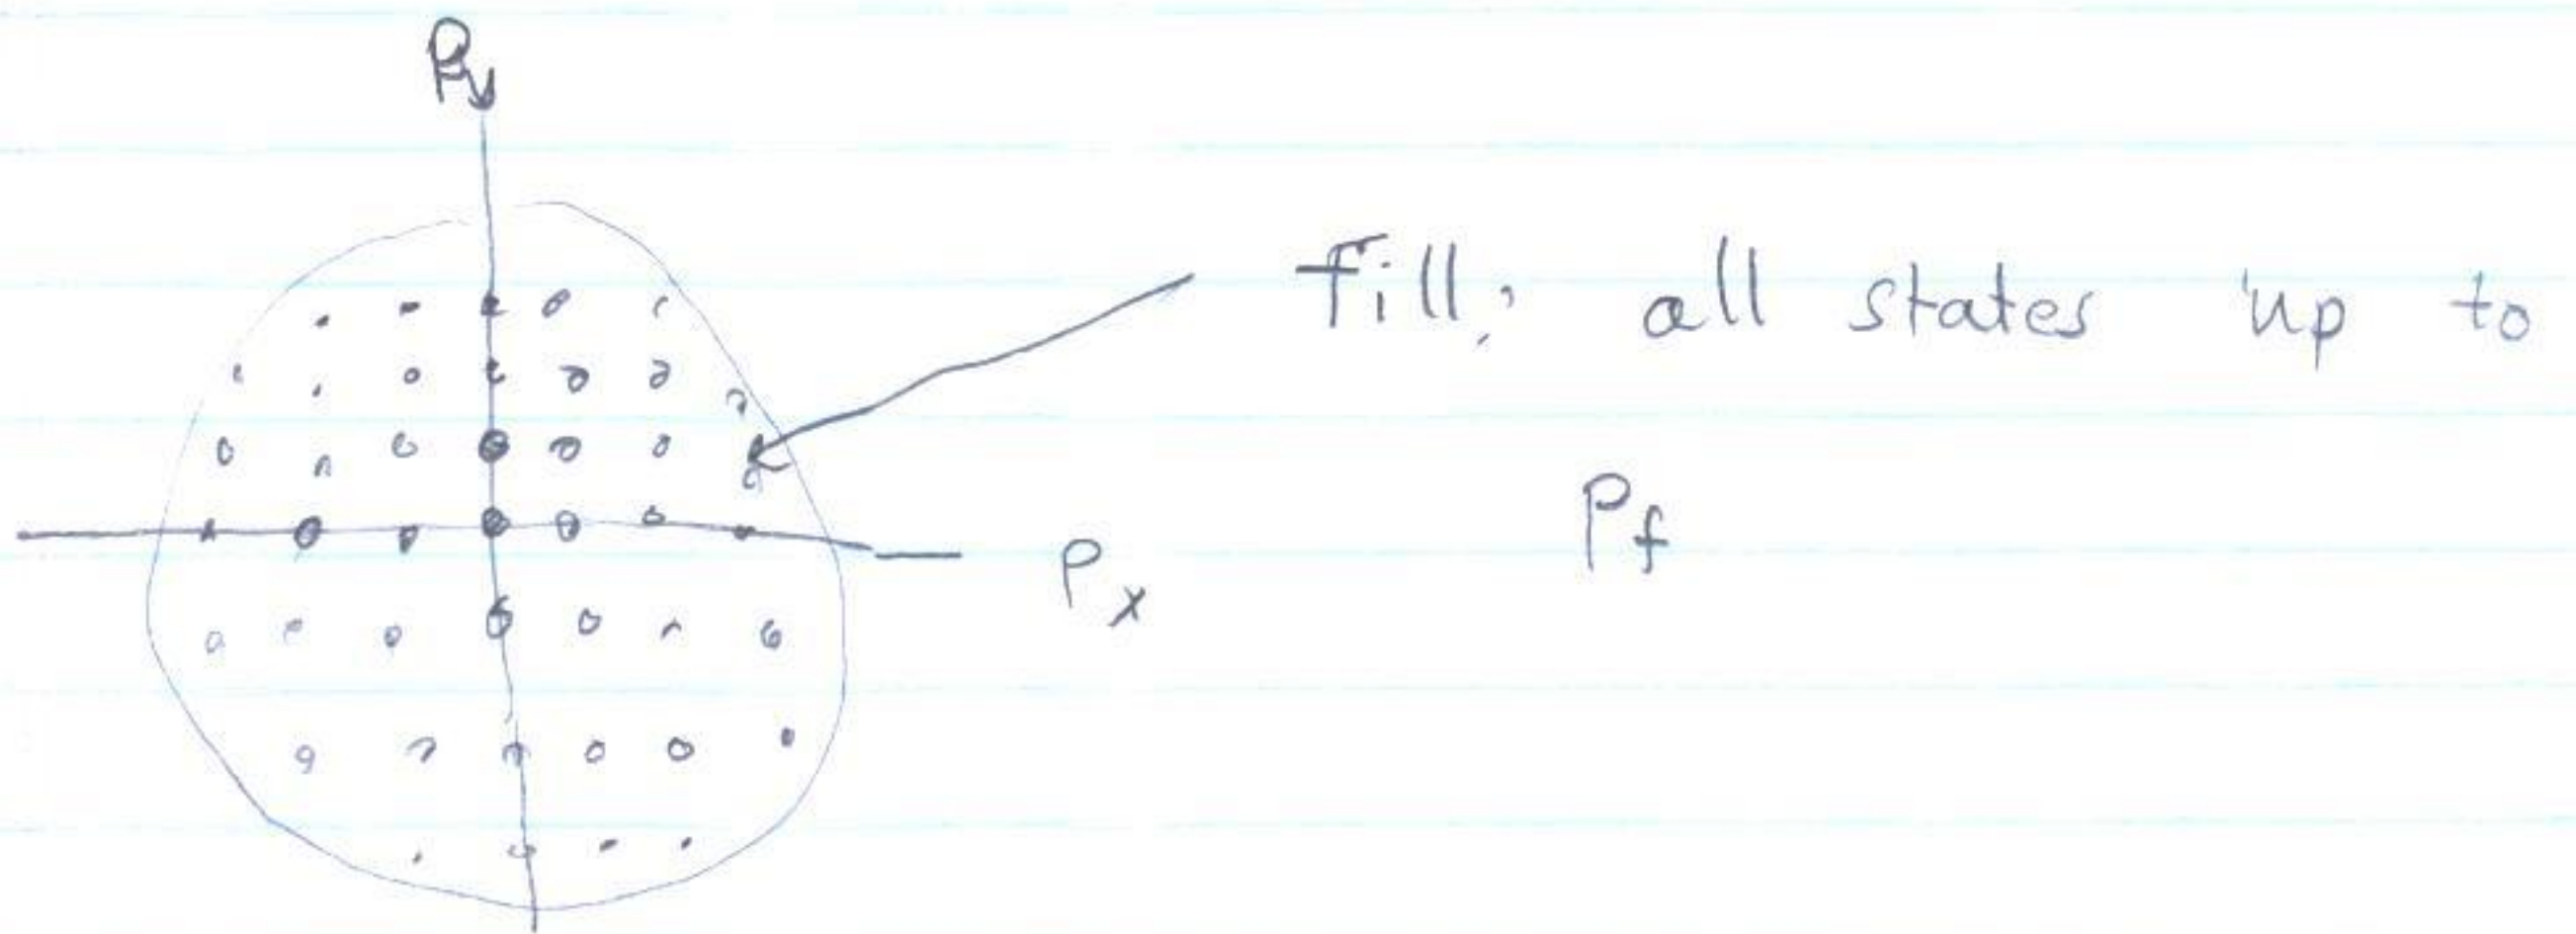 Py
Fill: all states up to
Px
Pf